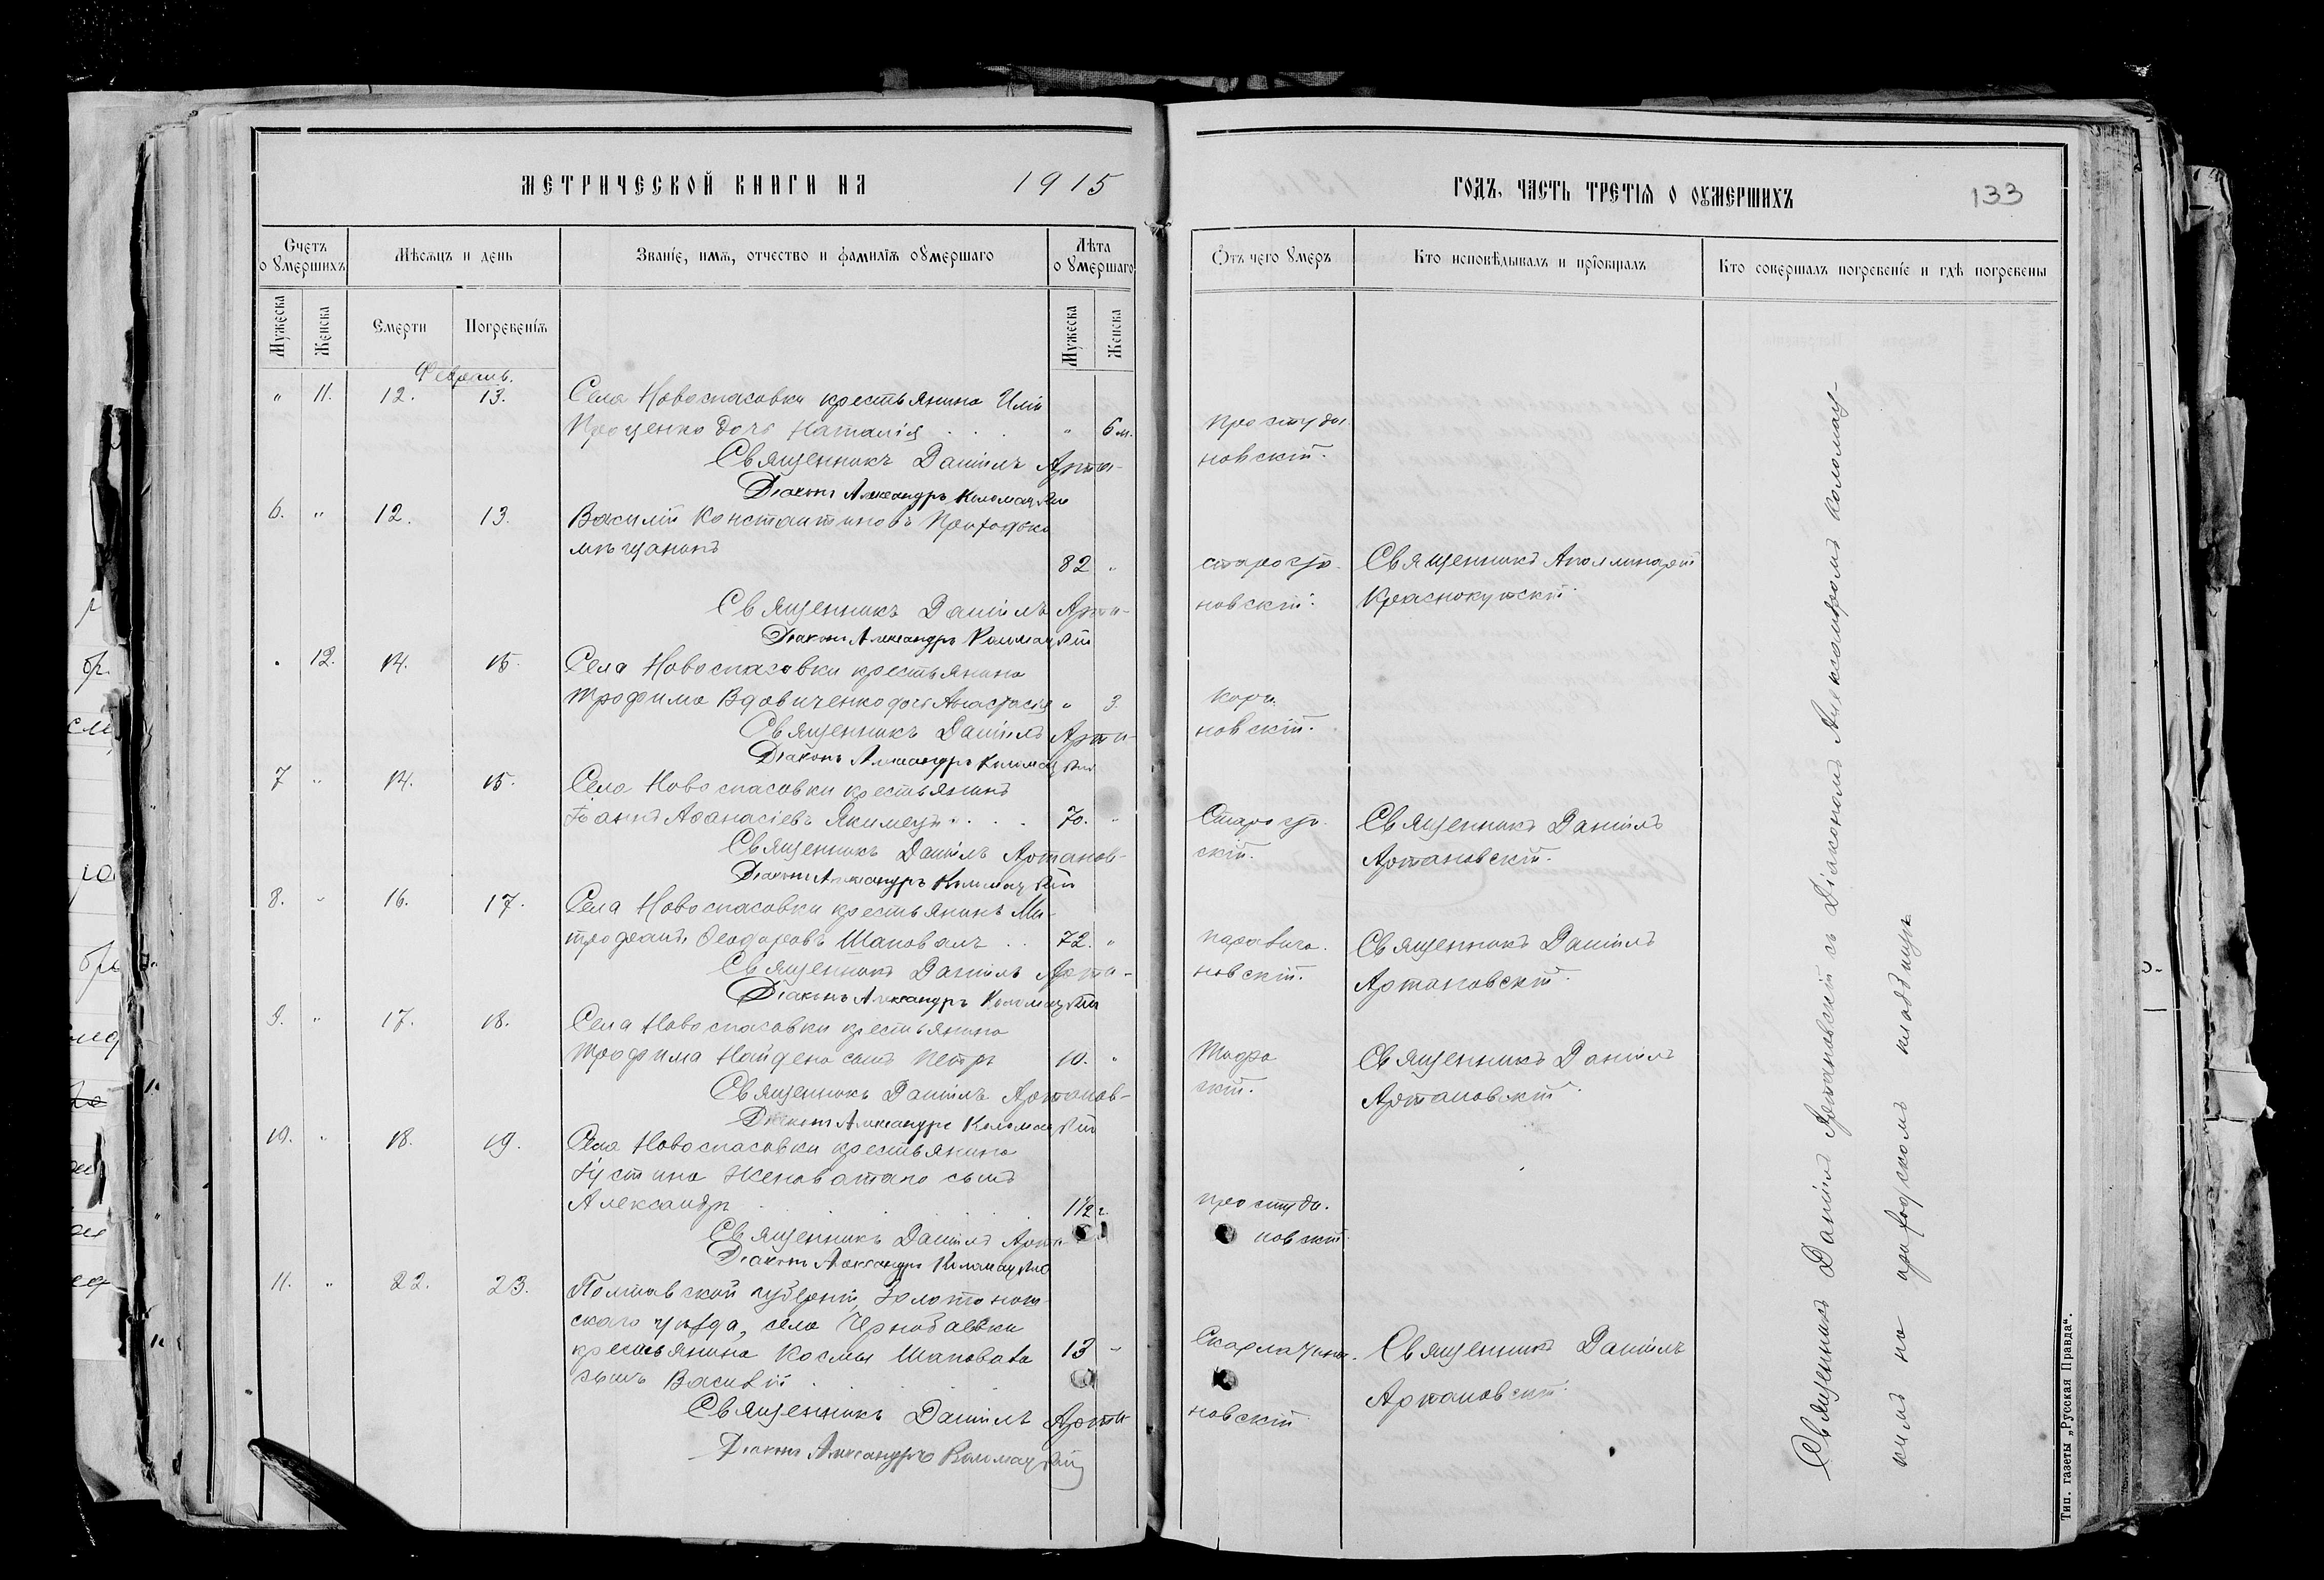 МЕТРИЧЕСКОЙ КНИГИ НА 1915
ГОДЪ, ЧАСТЬ ТРЕТІЯ О ОУМЕРШИХЪ 133
Счетъ оумершихъ
Мѣсяцъ и день
Званіе, имя, отчество и фамилія оумершаго
Лѣта оумершаго
Отъ чего умеръ
Кто исповѣдывалъ и пріобщалъ
Кто совершалъ погребеніе и гдѣ погребены
Мужеска
Женска
Смерти
Погребенія
Мужеска
Женска
Февраль.
" 11. 12. 13. Села Новоспасовки крестьянина Иліи
Проценко дочь Наталія . . . " 6 м. простуда.
Священникъ Даніилъ Арта-
новскій.
Діаконъ Александръ Коломацкій
6. " 12. 13. Василій Константиновъ Приходько
мѣщанинъ
82 " старость. Священникъ Аполлинарій
Краснокутскій.
Священникъ Даніилъ Арта-
новскій.
Діаконъ Александръ Коломацкій
" 12. 14. 15. Села Новоспасовки крестьянина
Трофима Вдовиченко дочь Анастасія " 3. корь.
Священникъ Даніилъ Арта-
новскій.
Діаконъ Александръ Коломацкій
7 " 14. 15. Села Новоспасовки крестьянинъ
Іоаннъ Аѳанасіевъ Якимецъ . . . 70. " Старость. Священникъ Даніилъ
Артановскій.
Священникъ Даніилъ Артанов-
скій.
Діаконъ Александръ Коломацкій
8. " 16. 17. Села Новоспасовки крестьянинъ Ми-
трофанъ Ѳеодоровъ Шаповалъ . . 72. " Священникъ Даніилъ
Артановскій.
Священникъ Даніилъ Арта-
новскій.
Діаконъ Александръ Коломацкій
9. " 17. 18. Села Новоспасовки крестьянина
Трофима Найдена сынъ Петръ 10. " Священникъ Даніилъ
Артановскій.
Священникъ Даніилъ Артанов-
скій.
Діаконъ Александръ Коломацкій
10. " 18. 19. Села Новоспасовки крестьянина
Іустина Женоватаго сынъ
Александръ . . . 1½ г. простуда.
Священникъ Даніилъ Арта-
новскій
Діаконъ Александръ Коломацкій
11. " 22. 23. Полтавской губерніи, Золотонош-
скаго уѣзда, села Чернобаевки
крестьянина Космы Шаповала 13 " Скарлатина. Священникъ Даніилъ
Артановскій.
сынъ Василій .
Священникъ Даніилъ Арта-
новскій
Діаконъ Александръ Коломацкій
Священникъ Даніилъ Артановскій съ Діакономъ Александромъ Коломац-
кимъ на приходскомъ кладбищѣ
Тип. газеты „Русская Правда“.